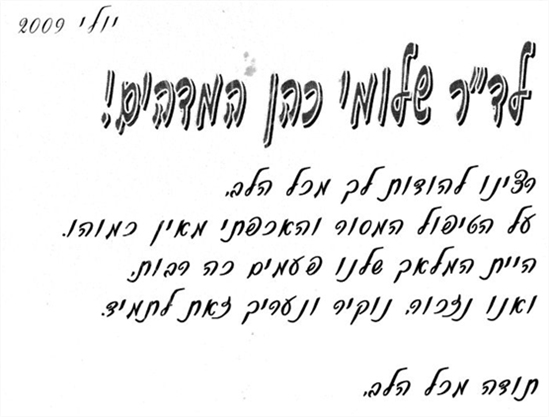 יולי 2009
לד"ר שלומי כהן המדהים!
רצינו להודות לך מכל הלב,
על הטיפול המסור והאכפתי מאין כמוהו.
היית המלאך שלנו פעמים כה רבות.
ואנו נזכור, נוקיר ונעריך זאת לתמיד.
תודה מכל הלב,